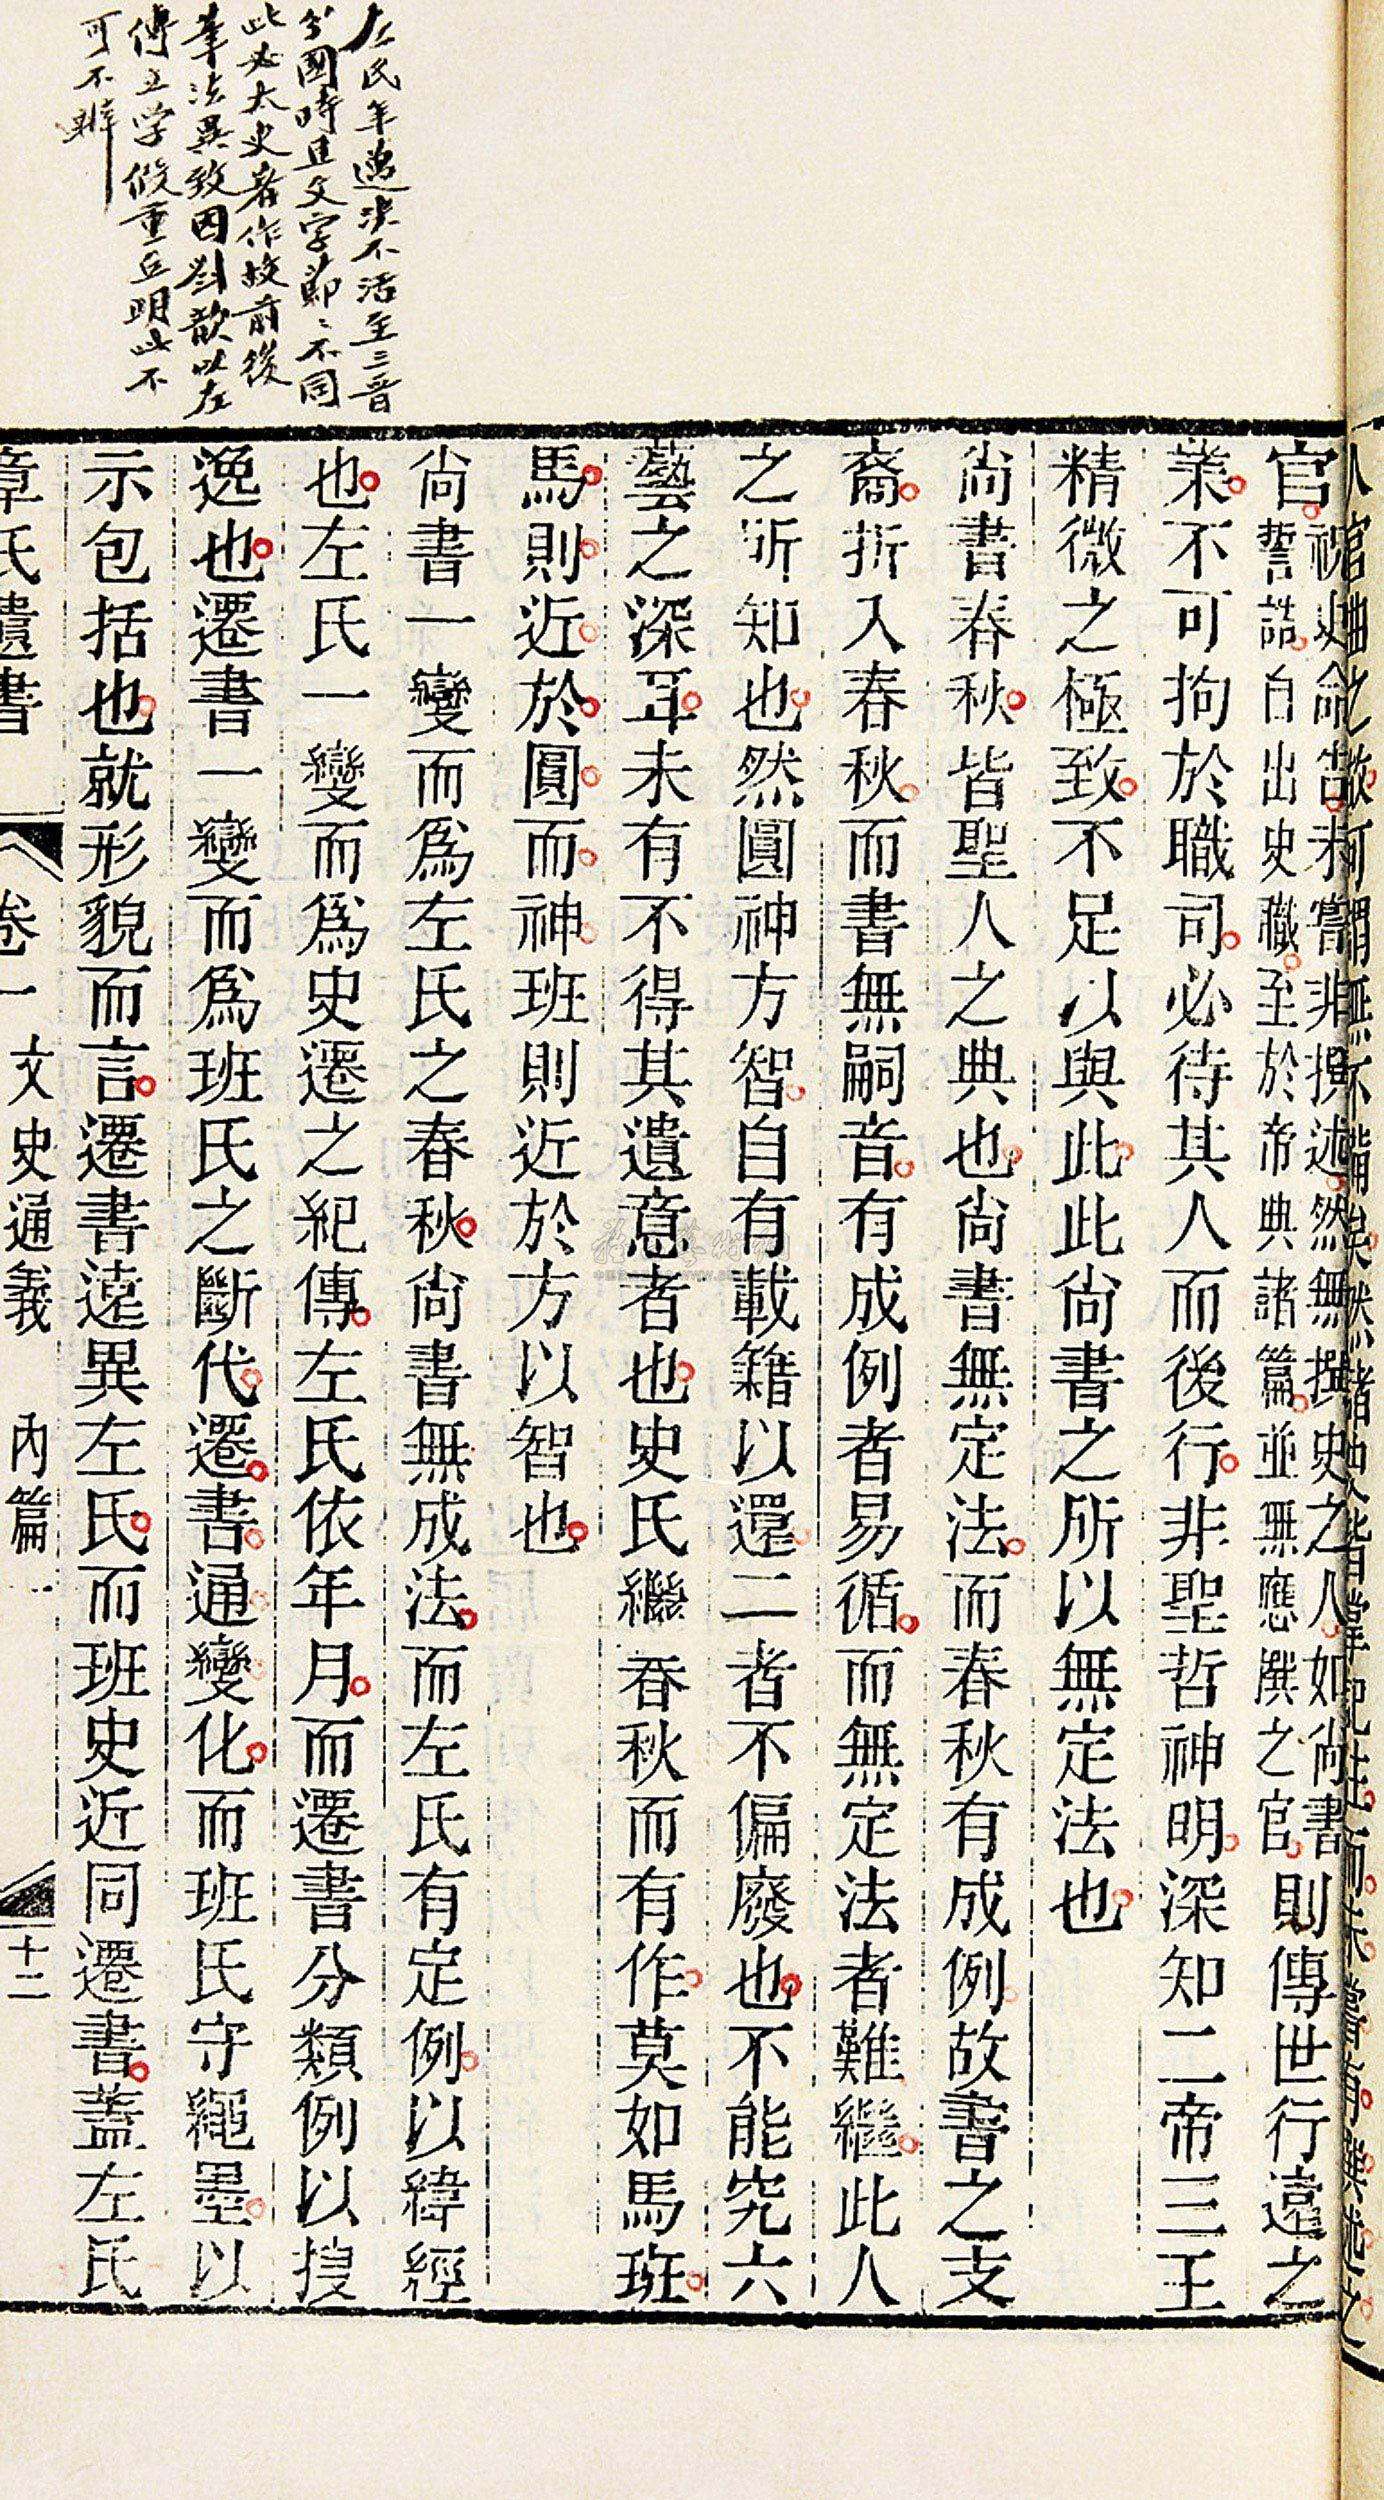 左氏年邁決不活至三晉
分國時且文字節〻不同
此必太史者作故前後
筆法異致因劉歆以左
傳立学假重丘明此不
可不辨
官祝史命誥未嘗非撰述然無撰史之人如尙書
誓誥自出史職至於帝典諸篇並無應撰之官則傳世行遠之
業不可拘於職司必待其人而後行非聖哲神明深知二帝三王
精微之極致不足以與此此尙書之所以無定法也
尙書春秋皆聖人之典也尙書無定法而春秋有成例故書之支
裔折入春秋而書無嗣音有成例者易循而無定法者難繼此人
之所知也然圓神方智自有載籍以還二者不偏廢也不能究六
藝之深耳未有不得其遺意者也史氏繼春秋而有作莫如馬班
馬則近於圓而神班則近於方以智也
尙書一變而爲左氏之春秋尙書無成法而左氏有定例以緯經
也左氏一變而爲史遷之紀傳左氏依年月而遷書分類例以搜
逸也遷書一變而爲班氏之斷代遷書通變化而班氏守繩墨以
示包括也就形貌而言遷書遠異左氏而班史近同遷書蓋左氏
章氏遺書 卷一 文史通義 內篇一 十二